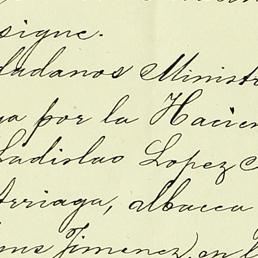 signe.
dadanos Ministr
ga por la Hacien
Ladislao Lopez
Arriaga, albacea
Jimenez, en l